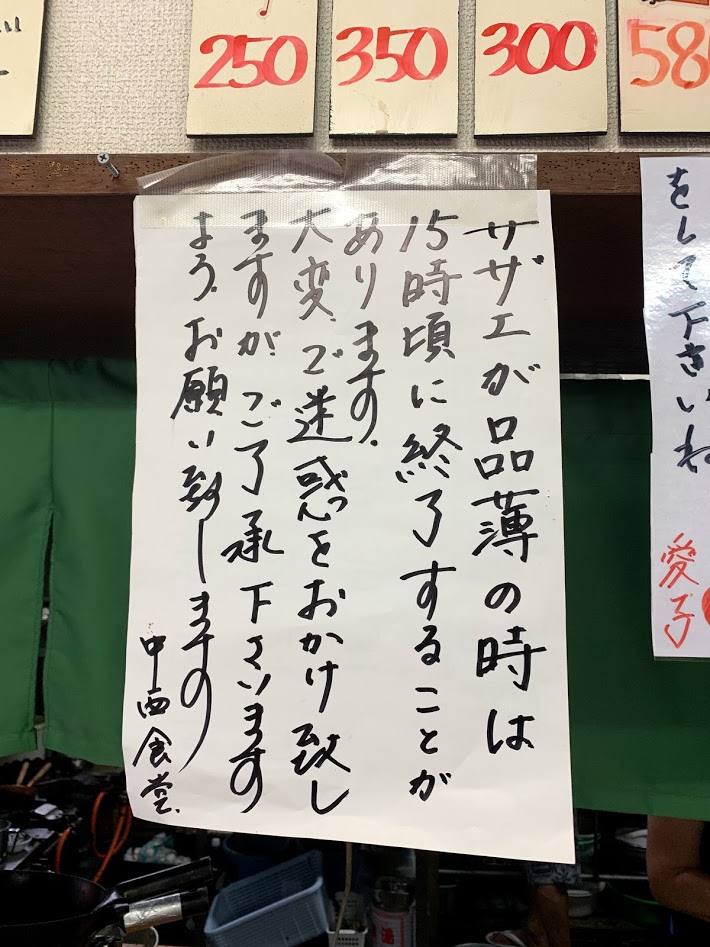 250
350
300
580
サザエが品薄の時は
15時頃に終了することが
あります.
大変.ご迷惑をおかけ致し
ますが.ご了承下さいます
よう.お願い致します
中西食堂.
をして下さいね
愛子